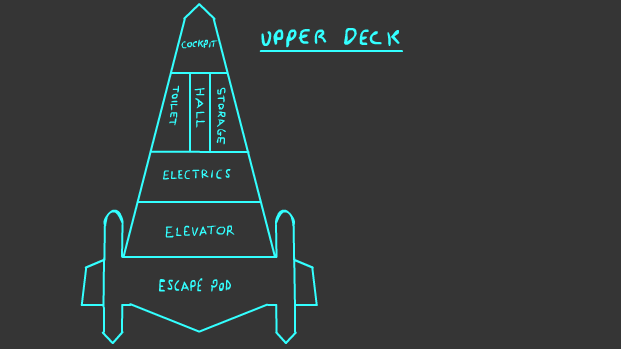 UPPER DECK
COCKPIT
TOILET
HALL
STORAGE
ELECTRICS
ELEVATOR
ESCAPE POD